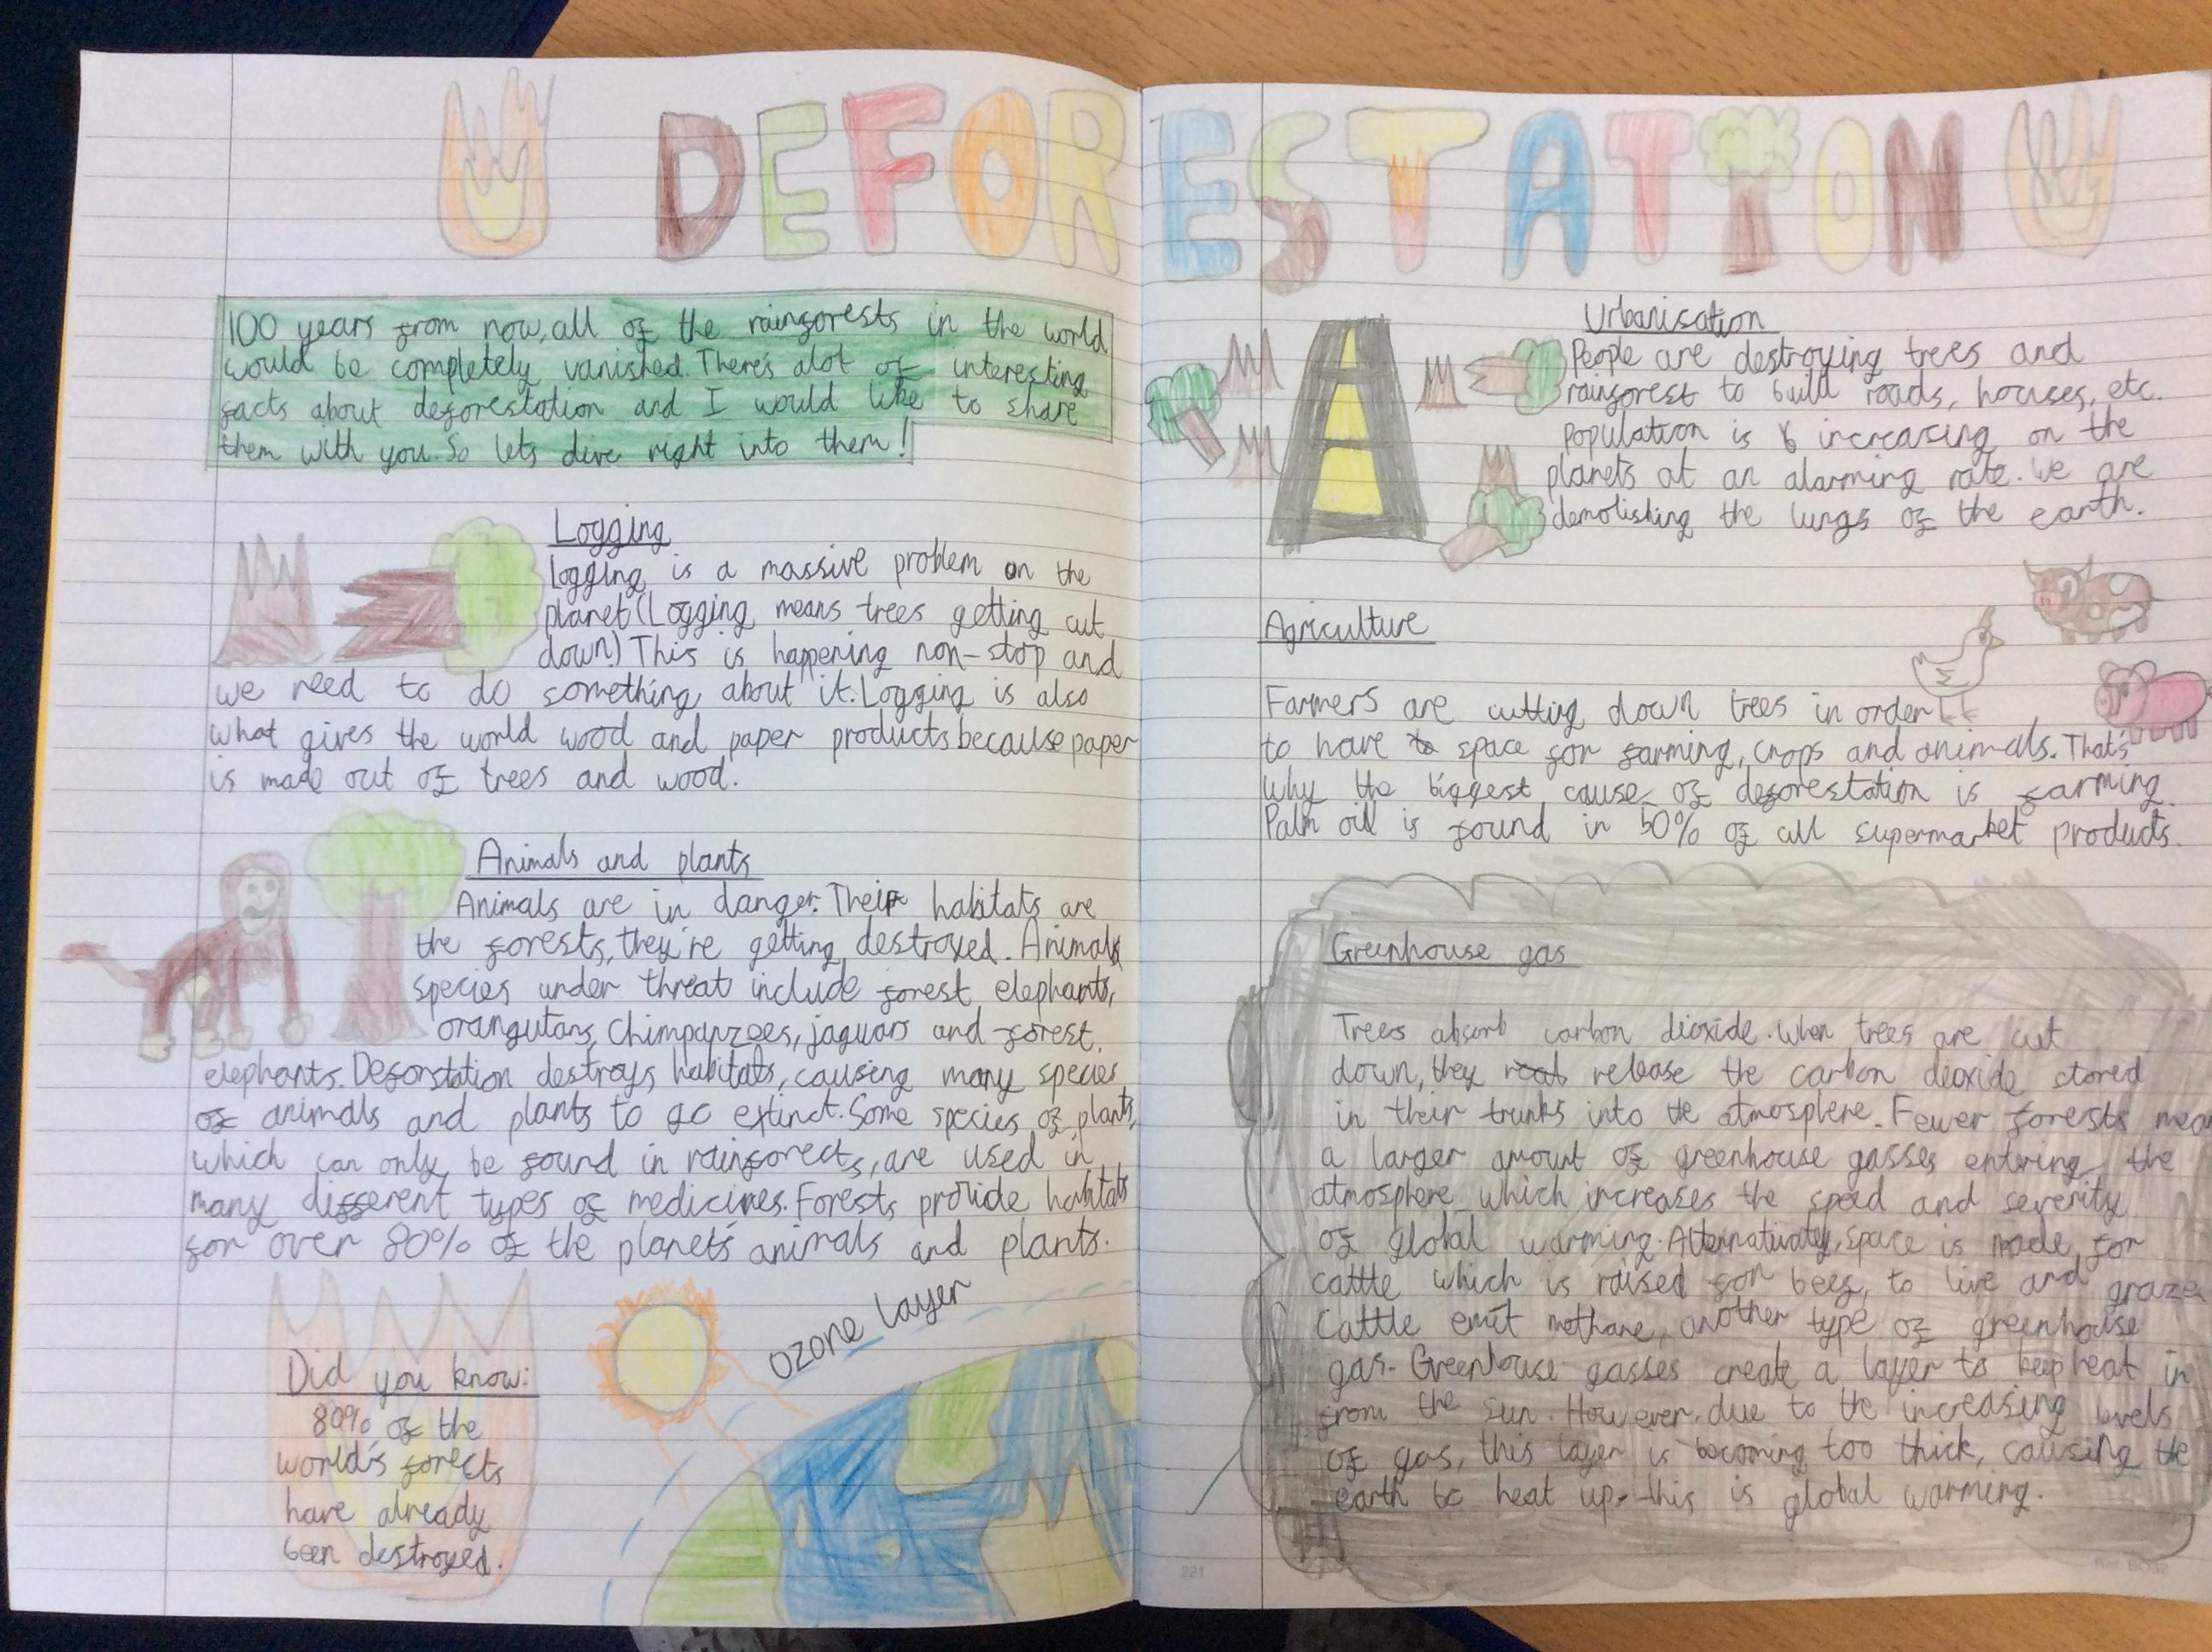 DEFORESTATION
100 years from now, all of the rainforests in the world
would be completely vanished. There's alot of interesting
facts about deforestation and I would like to share
them with you. So lets dive right into them!
Logging
Logging is a massive problem on the
planet (Logging means trees getting cut
down) This is happening non-stop and
we need to do something about it. Logging is also
what gives the world wood and paper products because paper
is made out of trees and wood.
Animals and plants
Animals are in danger. Their habitats are
the forests, they're getting destroyed. Animals
species under threat include forest elephants,
orangutans, Chimpanzees, jaguars and forest
elephants. Deforstation destroys habitats, causing many species
of animals and plants to go extinct. Some species of plants,
which can only be found in rainforests, are used in
many different types of medicines. Forests provide habitats
for over 80% of the planet's animals and plants.
Did you know:
80% of the
world's forests
have already
been destroyed.
ozone layer
Urbanisation
People are destroying trees and
rainforest to build roads, houses, etc.
Population is increasing on the
planets at an alarming rate. We are
demolishing the lungs of the earth.
Agriculture
Farmers are cutting down trees in order
to have space for farming, crops and animals. That's
why the biggest cause of deforestation is farming.
Palm oil is found in 50% of all supermarket products.
Greenhouse gas
Trees absorb carbon dioxide. When trees are cut
down, they release the carbon dioxide stored
in their trunks into the atmosphere. Fewer forests mean
a larger amount of greenhouse gasses entering the
atmosphere which increases the speed and severity
of global warming. Alternatively, space is made for
cattle which is raised for beef, to live and graze.
Cattle emit methane, another type of greenhouse
gas. Greenhouse gasses create a layer to keep heat in
from the sun. However, due to the increasing levels
of gas, this layer is becoming too thick, causing the
earth to heat up - this is global warming.
221